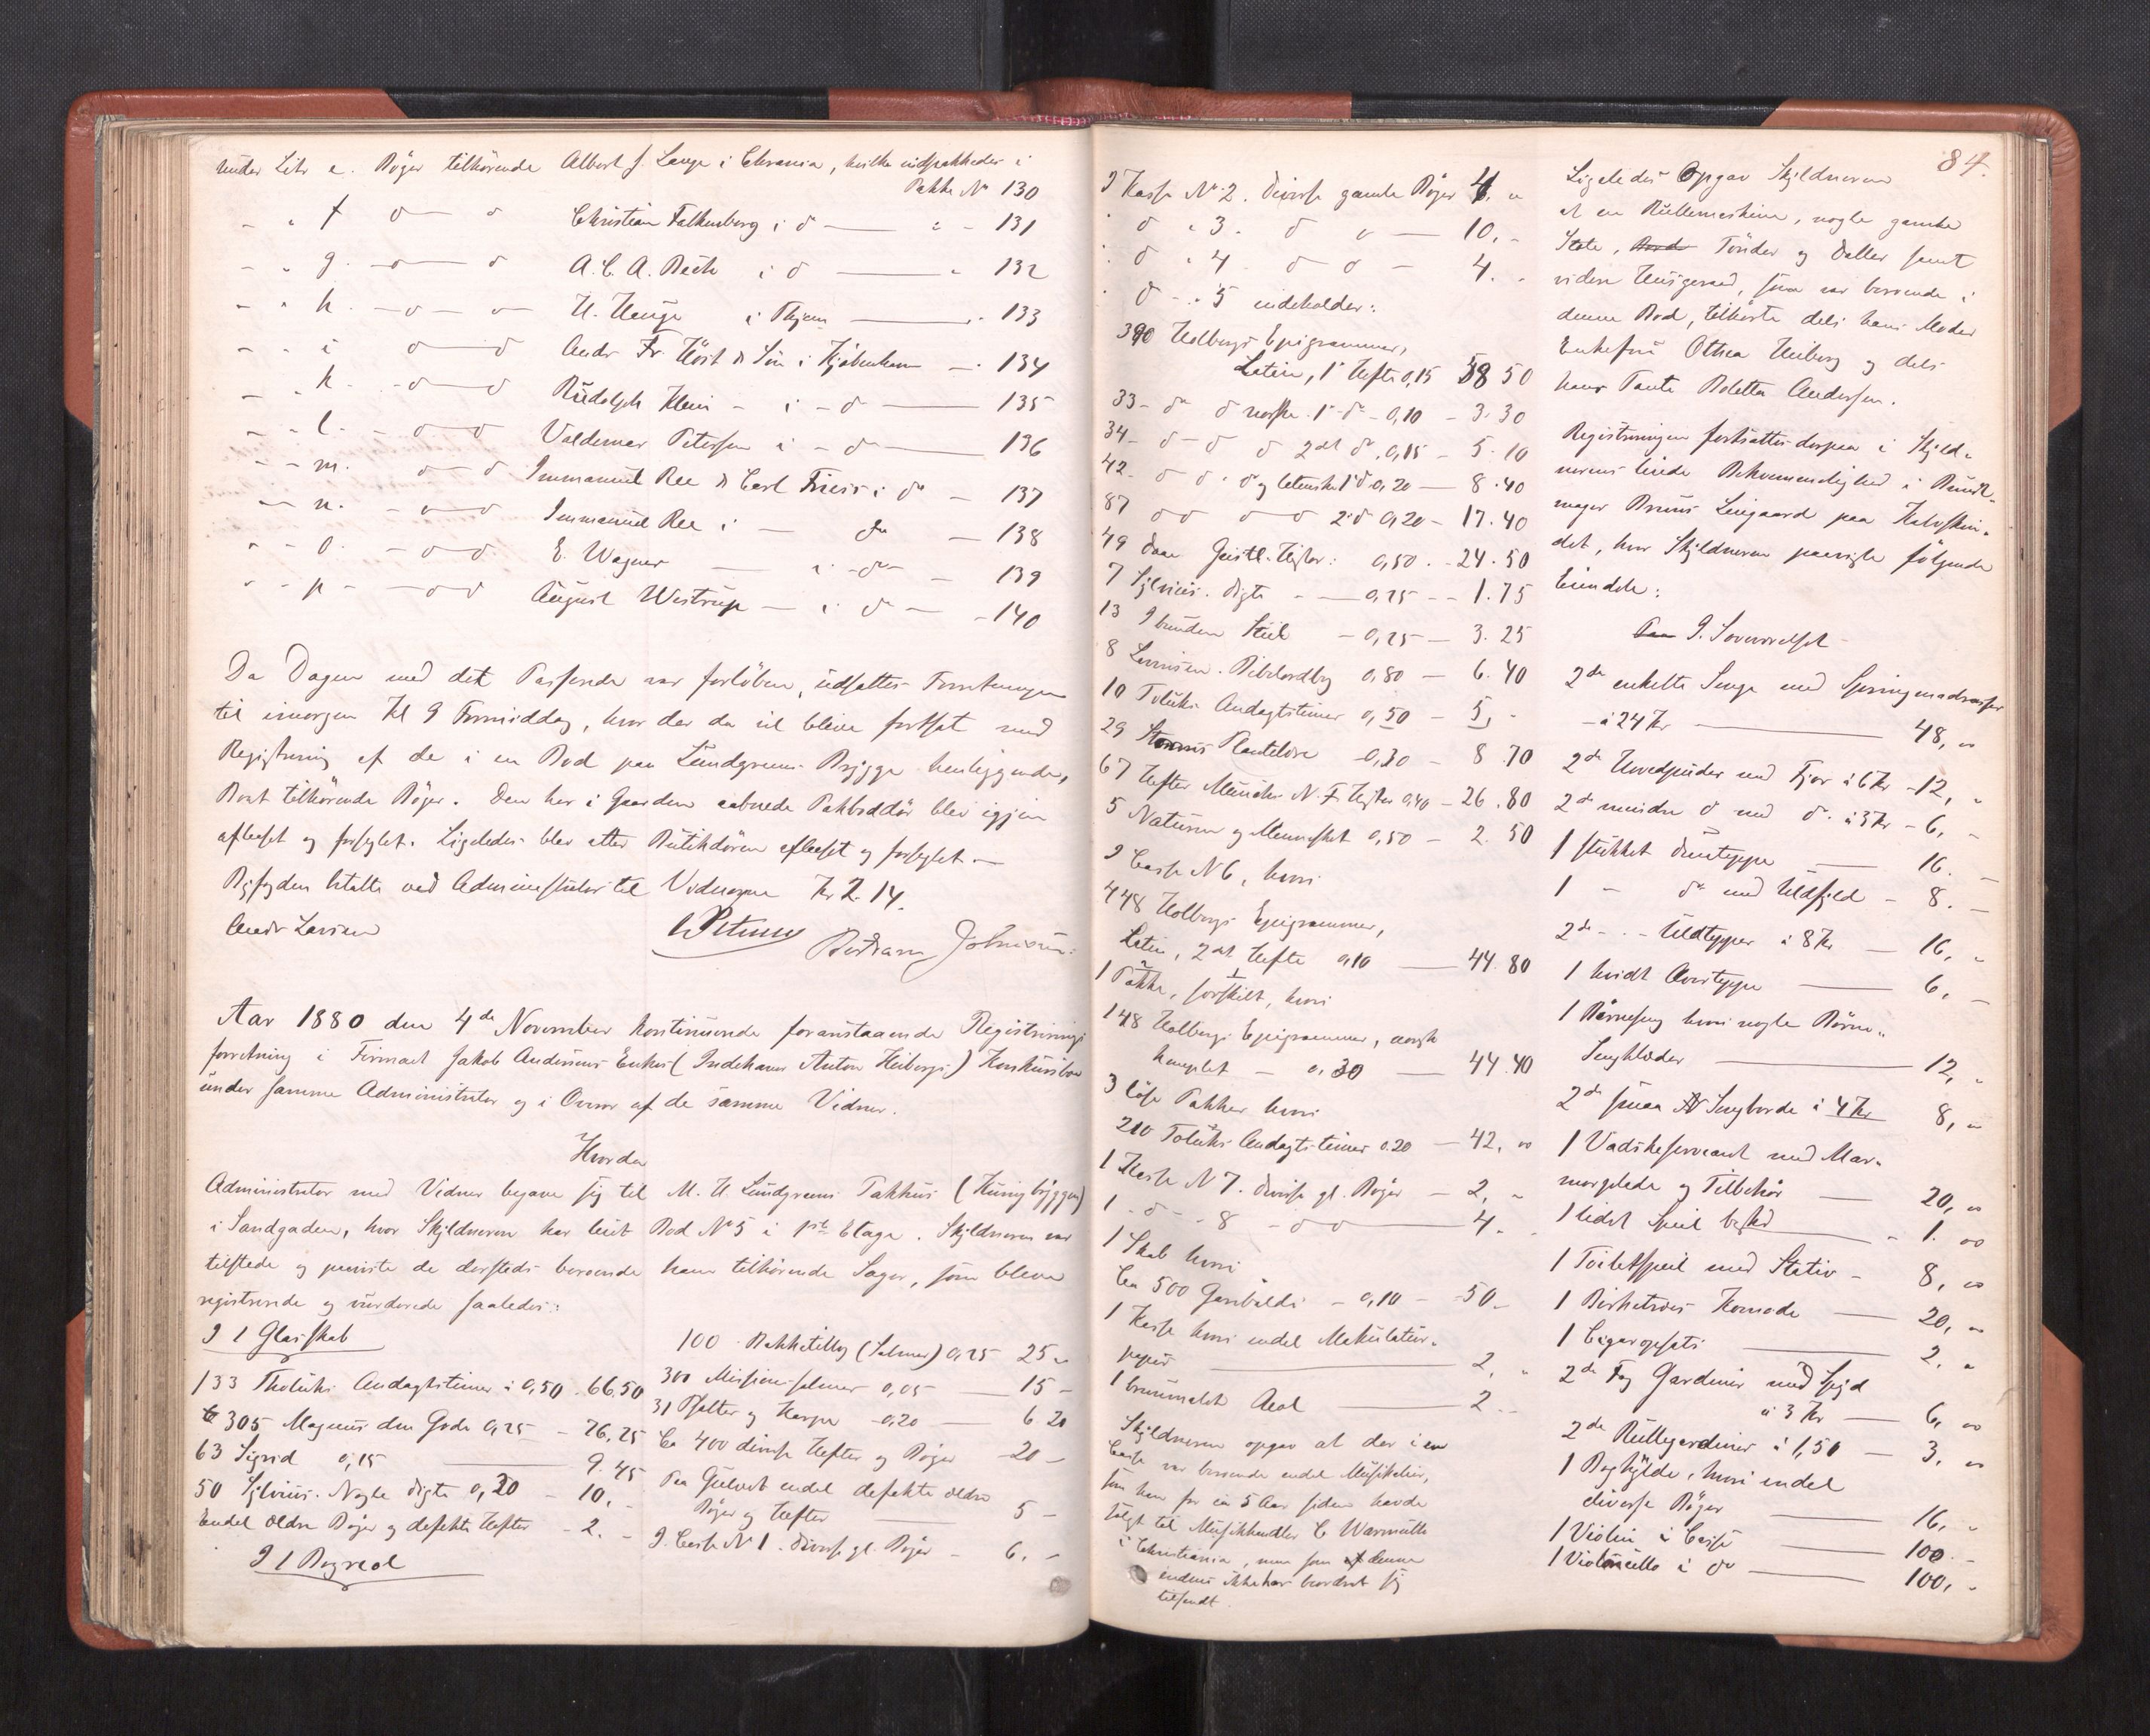 under Litr e. Bøger tilhørende Albert J. Lange i Chrania, hvilke indpakkedes i
Pakke No 130
- " f do - do Christian Falkenberg i do — " - 131
- " g. - do - do A. C. A. Bech i do — " 132
- " h. - do - do H. Hauge i Thjem — " 133
- - i do - do Andr Fr. Høst & Søn i Kjøbenhavn — 134
- " k. - do - do Rudolph Klein - i - do — 135
- - l. - do - do Valdemar Petersen i - do — 136
- - m. do - do Immanuel Ree & Carl i do — 137
- - n. - do - do Immanuel Ree i — do — 138
- - o. - do - do E. Wagner — i - do — 139
- - p - - do - do August Westrup — i do — 140
Da Dagen med det Passerede var forløben, udsattes Forretningen
til imorgen Kl 9 Formiddag, hvor der da vil blive fortsat med
Registrering af de i en Bod paa Lundgreens Brygge henliggende,
Boet tilhørende Bøger. Den her i Gaarden aabnede Pakboddør blev igjen
aflaaset og forseglet. Ligeledes blev atter Butikdøren aflaaset og forseglet —
Byfogden betalte ved Administrator til Vidnerne Kr 2.14.
Andr Larsen
Bertram Johnsen
Aar 1880 den 4de November kontinuerede foranstaaende Registrerings
forretning i Firmaet Jakob Andersens Enkes (Indehaver Anton Heibergs) Konkursbo
under samme Administrator og i Overvær af de samme Vidner.
Hvorda
Administrator med Vidner begave sig til M. H. Lundgreens Pakhus
i Sandgaden, hvor Skyldneren har leiet Bod No 5 i 1ste Etage. Skyldneren var
tilstede og paaviste de dersteds beroende ham tilhørende Sager, som bleve
registrerede og vurderede saaledes:
I 1 Glasskab
133 Tholuks Andagtstimer à 0,50 . 66.50
305 Magnus den Gode 0,25 - 76,25
63 Sigrid 0,15 — 9.45
50 Sylvius. Nogle Digte 0,20 - 10, -
Endel ældre Bøger og defekte Hefter - 2. -
I 1 Bogreol
100 Bakketilby (Salmer) 0,25 25 "
300 Missionssalmer 0,05 — 15 -
31 Psalter og Harpe - 0,20 — 6 20
Ca 400 diverse Hefter og Bøger - 20 -
Paa Gulvet endel defekte ældre
Bøger og Hefter — 5 -
I. Casse N 1. diverse gl. Bøger - 6, -
84.
I Kasse No 2. diverse gamle Bøger 4. "
do " 3. do do — 10, -
do " 4 - do do - 4. -
do - " 5 indeholder:
390 Holbergs Epigrammer,
Latin, 1ste Hefte 0,15 58 50
33 - do do norske. 1ste do - 0,10 - 3.30
34 - do - do do 2det do. 0,15 - 5.10
42 - do do. do og latinske 1ste do 0,20 — 8.40
87 do do do - do 2. do 0,20 - 17.40
49 Daae Geistl. Histor: 0,50. - 24.50
7 Sylvius. Digte - — 0,25 - - 1.75
13 Ibunden Stiil - 0,25 — 3.25
8 . Bibelordbog 0,80 — 6.40
10 Toluks Andagtstimer 0,50 - 5, -
29 Plantelære - 0,30 - 8.70
67 Hefter Munchs N. F. Histor 0,40 - 26.80
5 Naturen og Mennesket 0,50 - 2.50
I Casse N 6, hvori
448 Holbergs Epigrammer,
Latin, 2det Hefte 0,10 — 44.80
1 Pakke, særskilt, hvori
148 Holbergs Epigrammer, norsk
komplet — 0,30 — 44.40
3 løse Pakker hvori
210 Toluks Andagtstimer 0.20 — 42, "
1 Kasse N 7. diverse gl. Bøger — 2, "
1 - do - - 8 - do do — 4. -
1 Skab hvori
Ca 500 Garibaldi - 0,10 - 50 -
1 Kasse hvori endel Makulatur-
papir — 2, "
1 brunmalet Reol — 2 - -
Skyldneren opgav at der i en
Casse var beroende endel Musikalier,
som han for ca 5 Aar siden havde
solgt til Musikhandler C Warmuth
i Christiania, men som af denne
endnu ikke har beordret sig
tilsendt.
Ligeledes Opgav Skyldneren
at en Rullemaskine, nogle gamle
Stole, Bord Tønder og Baller samt
videre Husgeraad, som var beroende i
denne Bod, tilhørte dels hans Moder
Enkefru Othea Heiberg og dels
hans Tante Boletta Andersen.
Registreringen fortsattes derpaa i Skyld-
nerens leiede Bekvemmelighed i Bundt-
mager Bruuns Leiegaard paa Kalvskin-
det, hvor Skyldneren paaviste følgende
Eiendele:
Paa I. Soveværelset
2de enkelte Senge med Springmadrasser
- à 24 Kr — 48, "
2de Hovedpuder med Fjær à 6 Kr - 12, "
2de mindre do med do. à 3 Kr - 6, -
1 stukket Duuntæppe — 16. -
1 - do med Uldfyld - 8. -
2de - - - Uldtæpper à 8 Kr — 16, "
1 hvidt Overtæppe — 6, -
1 Barneseng hvori nogle Barne-
Sengklæder — 12, "
2de smaa Sengborde à 4 Kr 8, "
1 Vadskeservant med Mar-
morplade og Tilbehør — 20, "
1 lidet Speil — 1. "
1 Toiletspeil med Stativ - 8, "
1 Birketræs Komode — 20, "
1 Cigaropsats — 2. "
2de Fag Gardiner med Spyd
à 3 Kr — 6, "
2de Rullegardiner à 1,50 — 3, "
1 Boghylde, hvori endel
diverse Bøger — 16, "
1 Violin i Casse — 100. -
1 Violoncello i do — 100, -